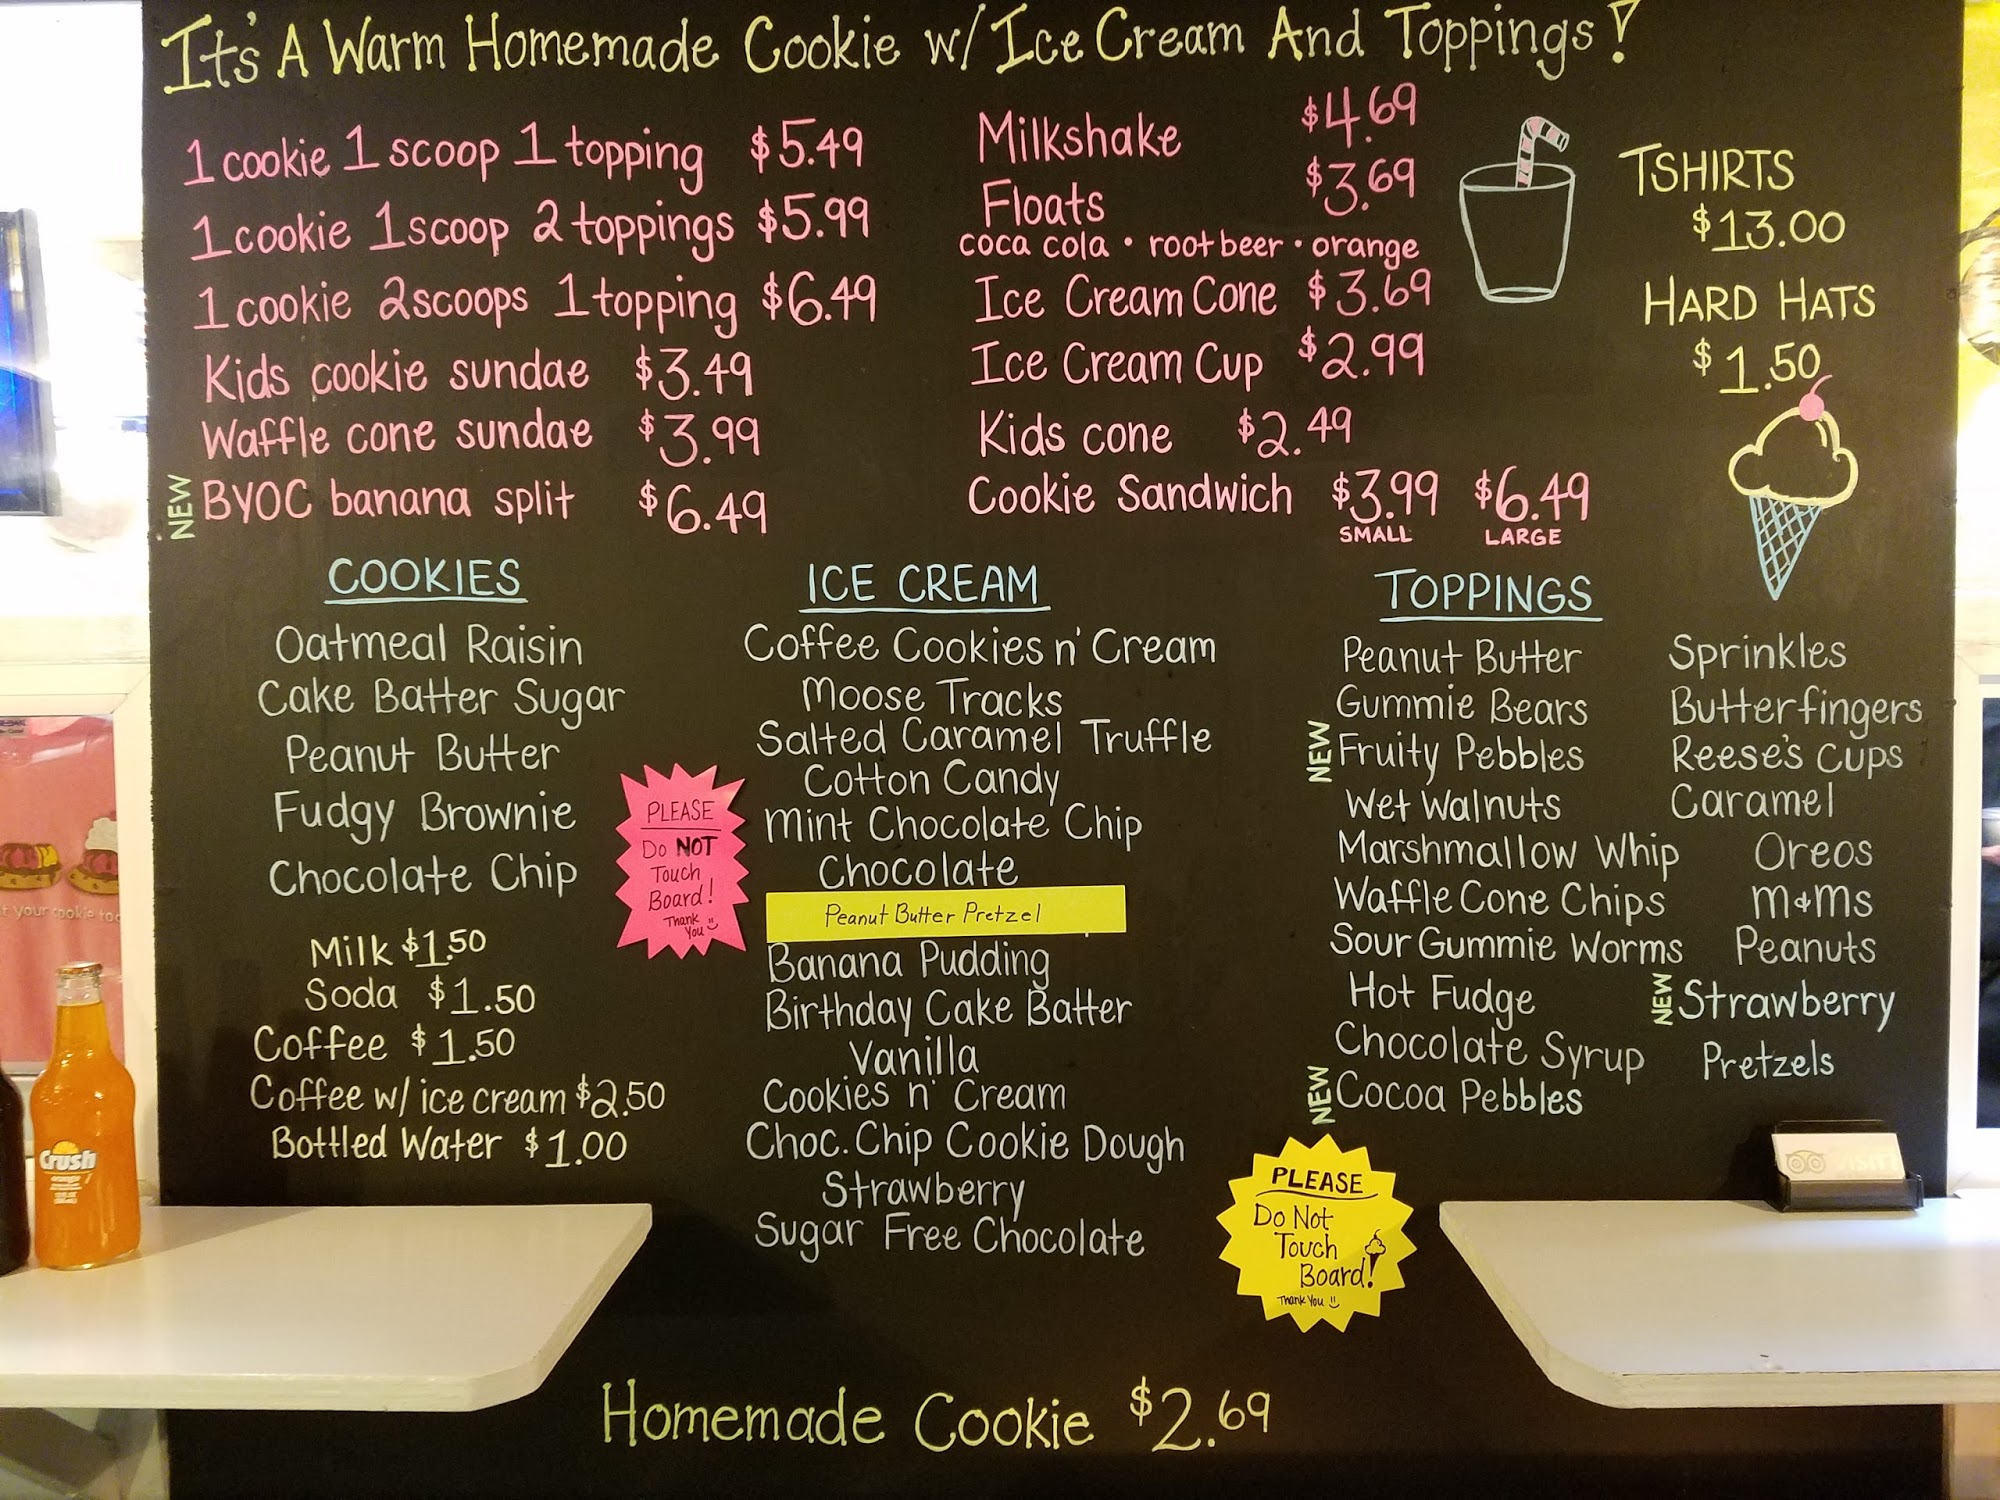 It's A Warm Homemade Cookie w/ Ice Cream And Toppings!
1 cookie 1 scoop 1 topping $5.49
1 cookie 1 scoop 2 toppings $5.99
1 cookie 2 scoops 1 topping $6.49
Kids cookie sundae $3.49
Waffle cone sundae $3.99
NEW BYOC banana split $6.49
Milkshake $4.69
Floats $3.69
coca cola • root beer • orange
Ice Cream Cone $3.69
Ice Cream Cup $2.99
Kids cone $2.49
Cookie Sandwich $3.99 $6.49
SMALL LARGE
TSHIRTS
$13.00
HARD HATS
$1.50
COOKIES
Oatmeal Raisin
Cake Batter Sugar
Peanut Butter
Fudgy Brownie
Chocolate Chip
Milk $1.50
Soda $1.50
Coffee $1.50
Coffee w/ ice cream $2.50
Bottled Water $1.00
PLEASE
Do NOT
Touch
Board!
Thank
You
ICE CREAM
Coffee Cookies n' Cream
Moose Tracks
Salted Caramel Truffle
Cotton Candy
Mint Chocolate Chip
Chocolate
Peanut Butter Pretzel
Banana Pudding
Birthday Cake Batter
Vanilla
Cookies n' Cream
Choc. Chip Cookie Dough
Strawberry
Sugar Free Chocolate
TOPPINGS
Peanut Butter
Gummie Bears
NEW Fruity Pebbles
Wet Walnuts
Marshmallow Whip
Waffle Cone Chips
Sour Gummie Worms
Hot Fudge
Chocolate Syrup
NEW Cocoa Pebbles
Sprinkles
Butterfingers
Reese's Cups
Caramel
Oreos
M&Ms
Peanuts
NEW Strawberry
Pretzels
PLEASE
Do Not
Touch
Board!
Thank You
Homemade Cookie $2.69
Crush
orange
your cookie